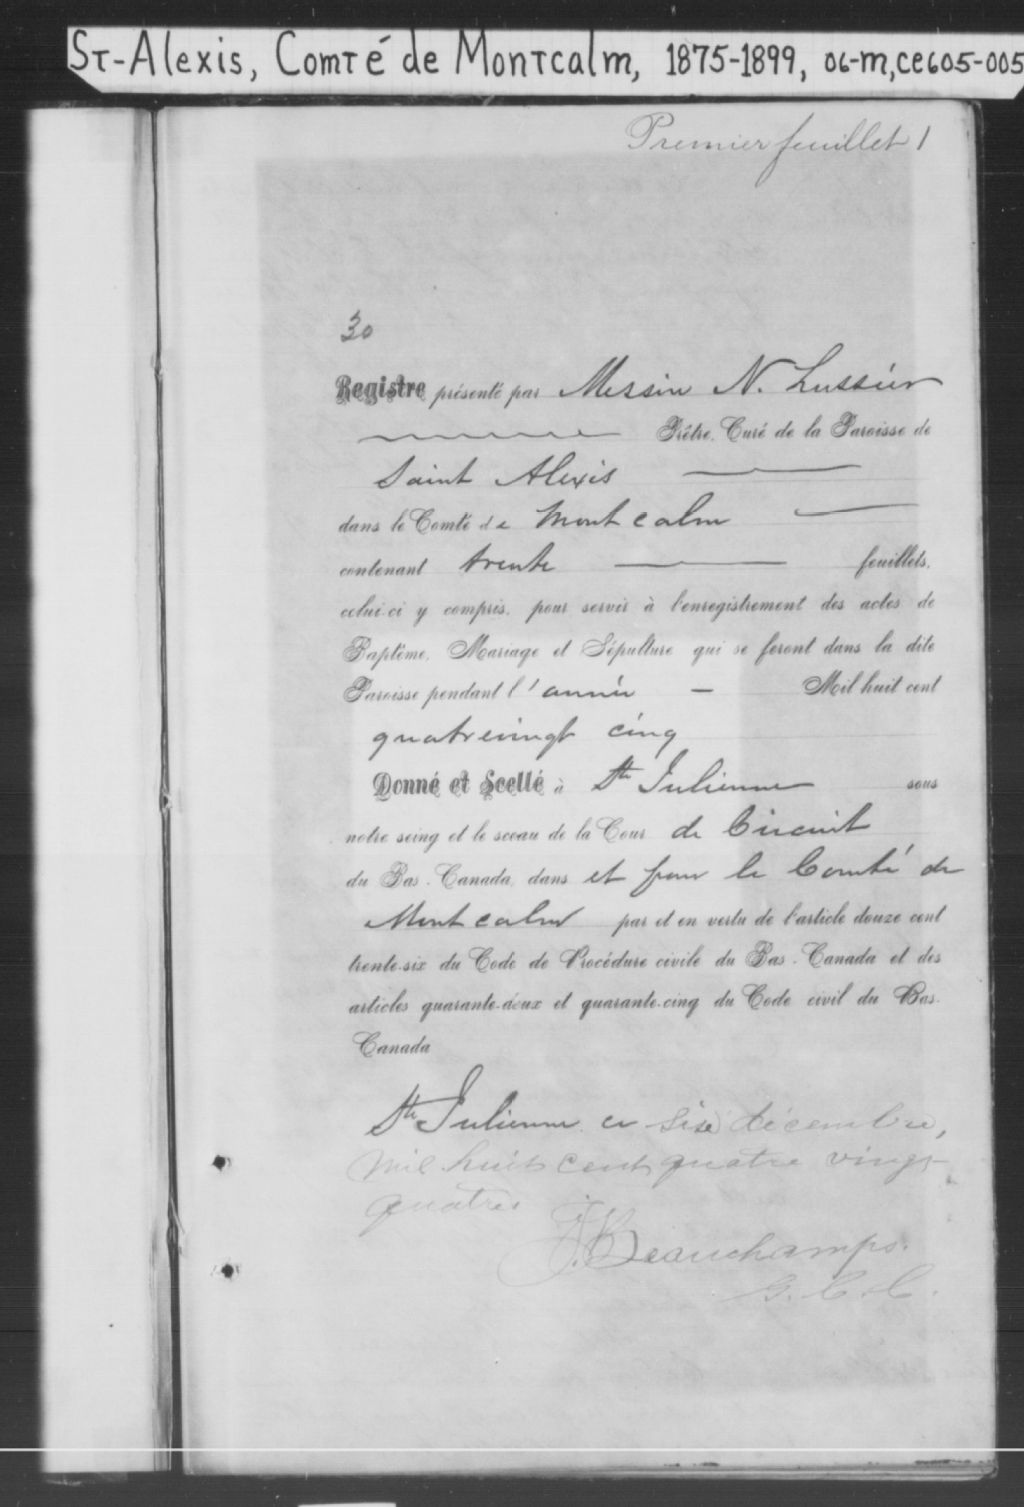 St-Alexis, Comté de Montcalm, 1875-1899, 06-M,CE605-005
Premier feuillet 1
30
Registre présenté par Messire N. Lussier
Prêtre, Curé de la Paroisse de
Saint Alexis
dans le Comté de Montcalm
contenant trente feuillets,
celui-ci y compris, pour servir à l'enregistrement des actes de
Baptême, Mariage et Sépulture qui se feront dans la dite
Paroisse pendant l'année — Mil huit cent
quatrevingt cinq
Donné et Scellé à Ste Julienne sous
notre seing et le sceau de la Cour de Circuit
du Bas-Canada, dans et pour le Comté de
Montcalm par et en vertu de l'article douze cent
trente-six du Code de Procédure civile du Bas-Canada et des
articles quarante-deux et quarante-cinq du Code civil du Bas-
Canada
Ste Julienne ce six décembre,
mil huit cent quatre vingt-
quatre
J. Beauchamps.
G. C. C.